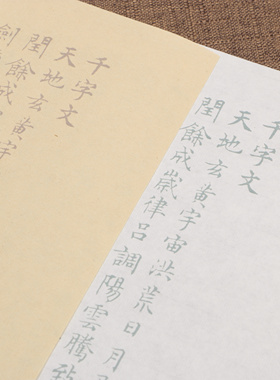 千字文
天地玄黃宇宙洪荒日月
閏餘成歲律呂調陽雲騰致
千字文
天地玄黃宇
閏餘成
劍